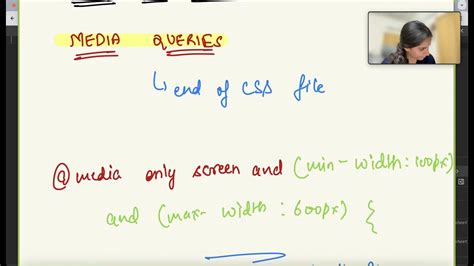 MEDIA QUERIES
↳ end of CSS file
@media only screen and (min-width:100px)
and (max-width : 600px) {